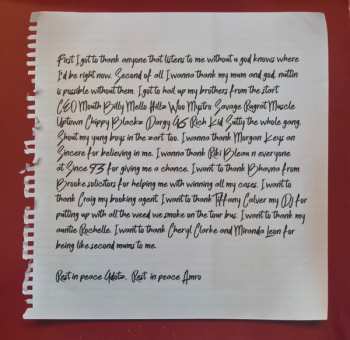 First I got to thank anyone that listens to me without u god knows where
I'd be right now. Second of all I wanna thank my mum and god. nuttin
is possible without them. I got to hail up my brothers from the start
CEO Mouth Billy Mello Hillz Woo Mystro Savage Ragrat Muscle
Uptown Chippy Blackz Dargy GS Rich Kid Sutty the whole gang.
Shout my yung boys in the zart too. I wanna thank Morgan Keys an
Sincere for believing in me. I wanna thank Riki Bleau n everyone
at Since 93 for giving me a chance. I want to thank Bhavna from
Brooke solicitors for helping me with winning all my cases. I want to
thank Craig my booking agent. I want to thank Tiffany Calver my DJ for
putting up with all the weed we smoke on the tour bus. I want to thank my
auntie Rochelle. I want to thank Cheryl Clarke and Miranda Leon for
being like second mums to me.
Rest in peace Adotz. Rest in peace Amro